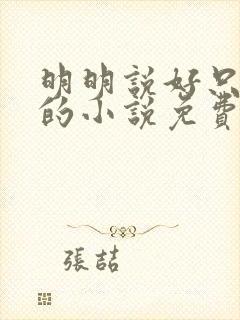 明明説好只
的小説免費
張喆